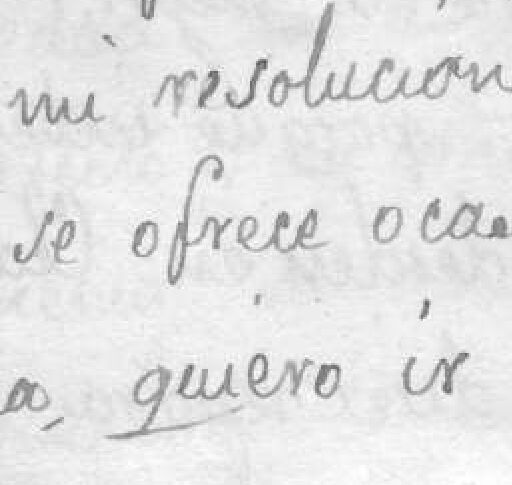 mi resolucion
se ofrece oca
a, quiero ir